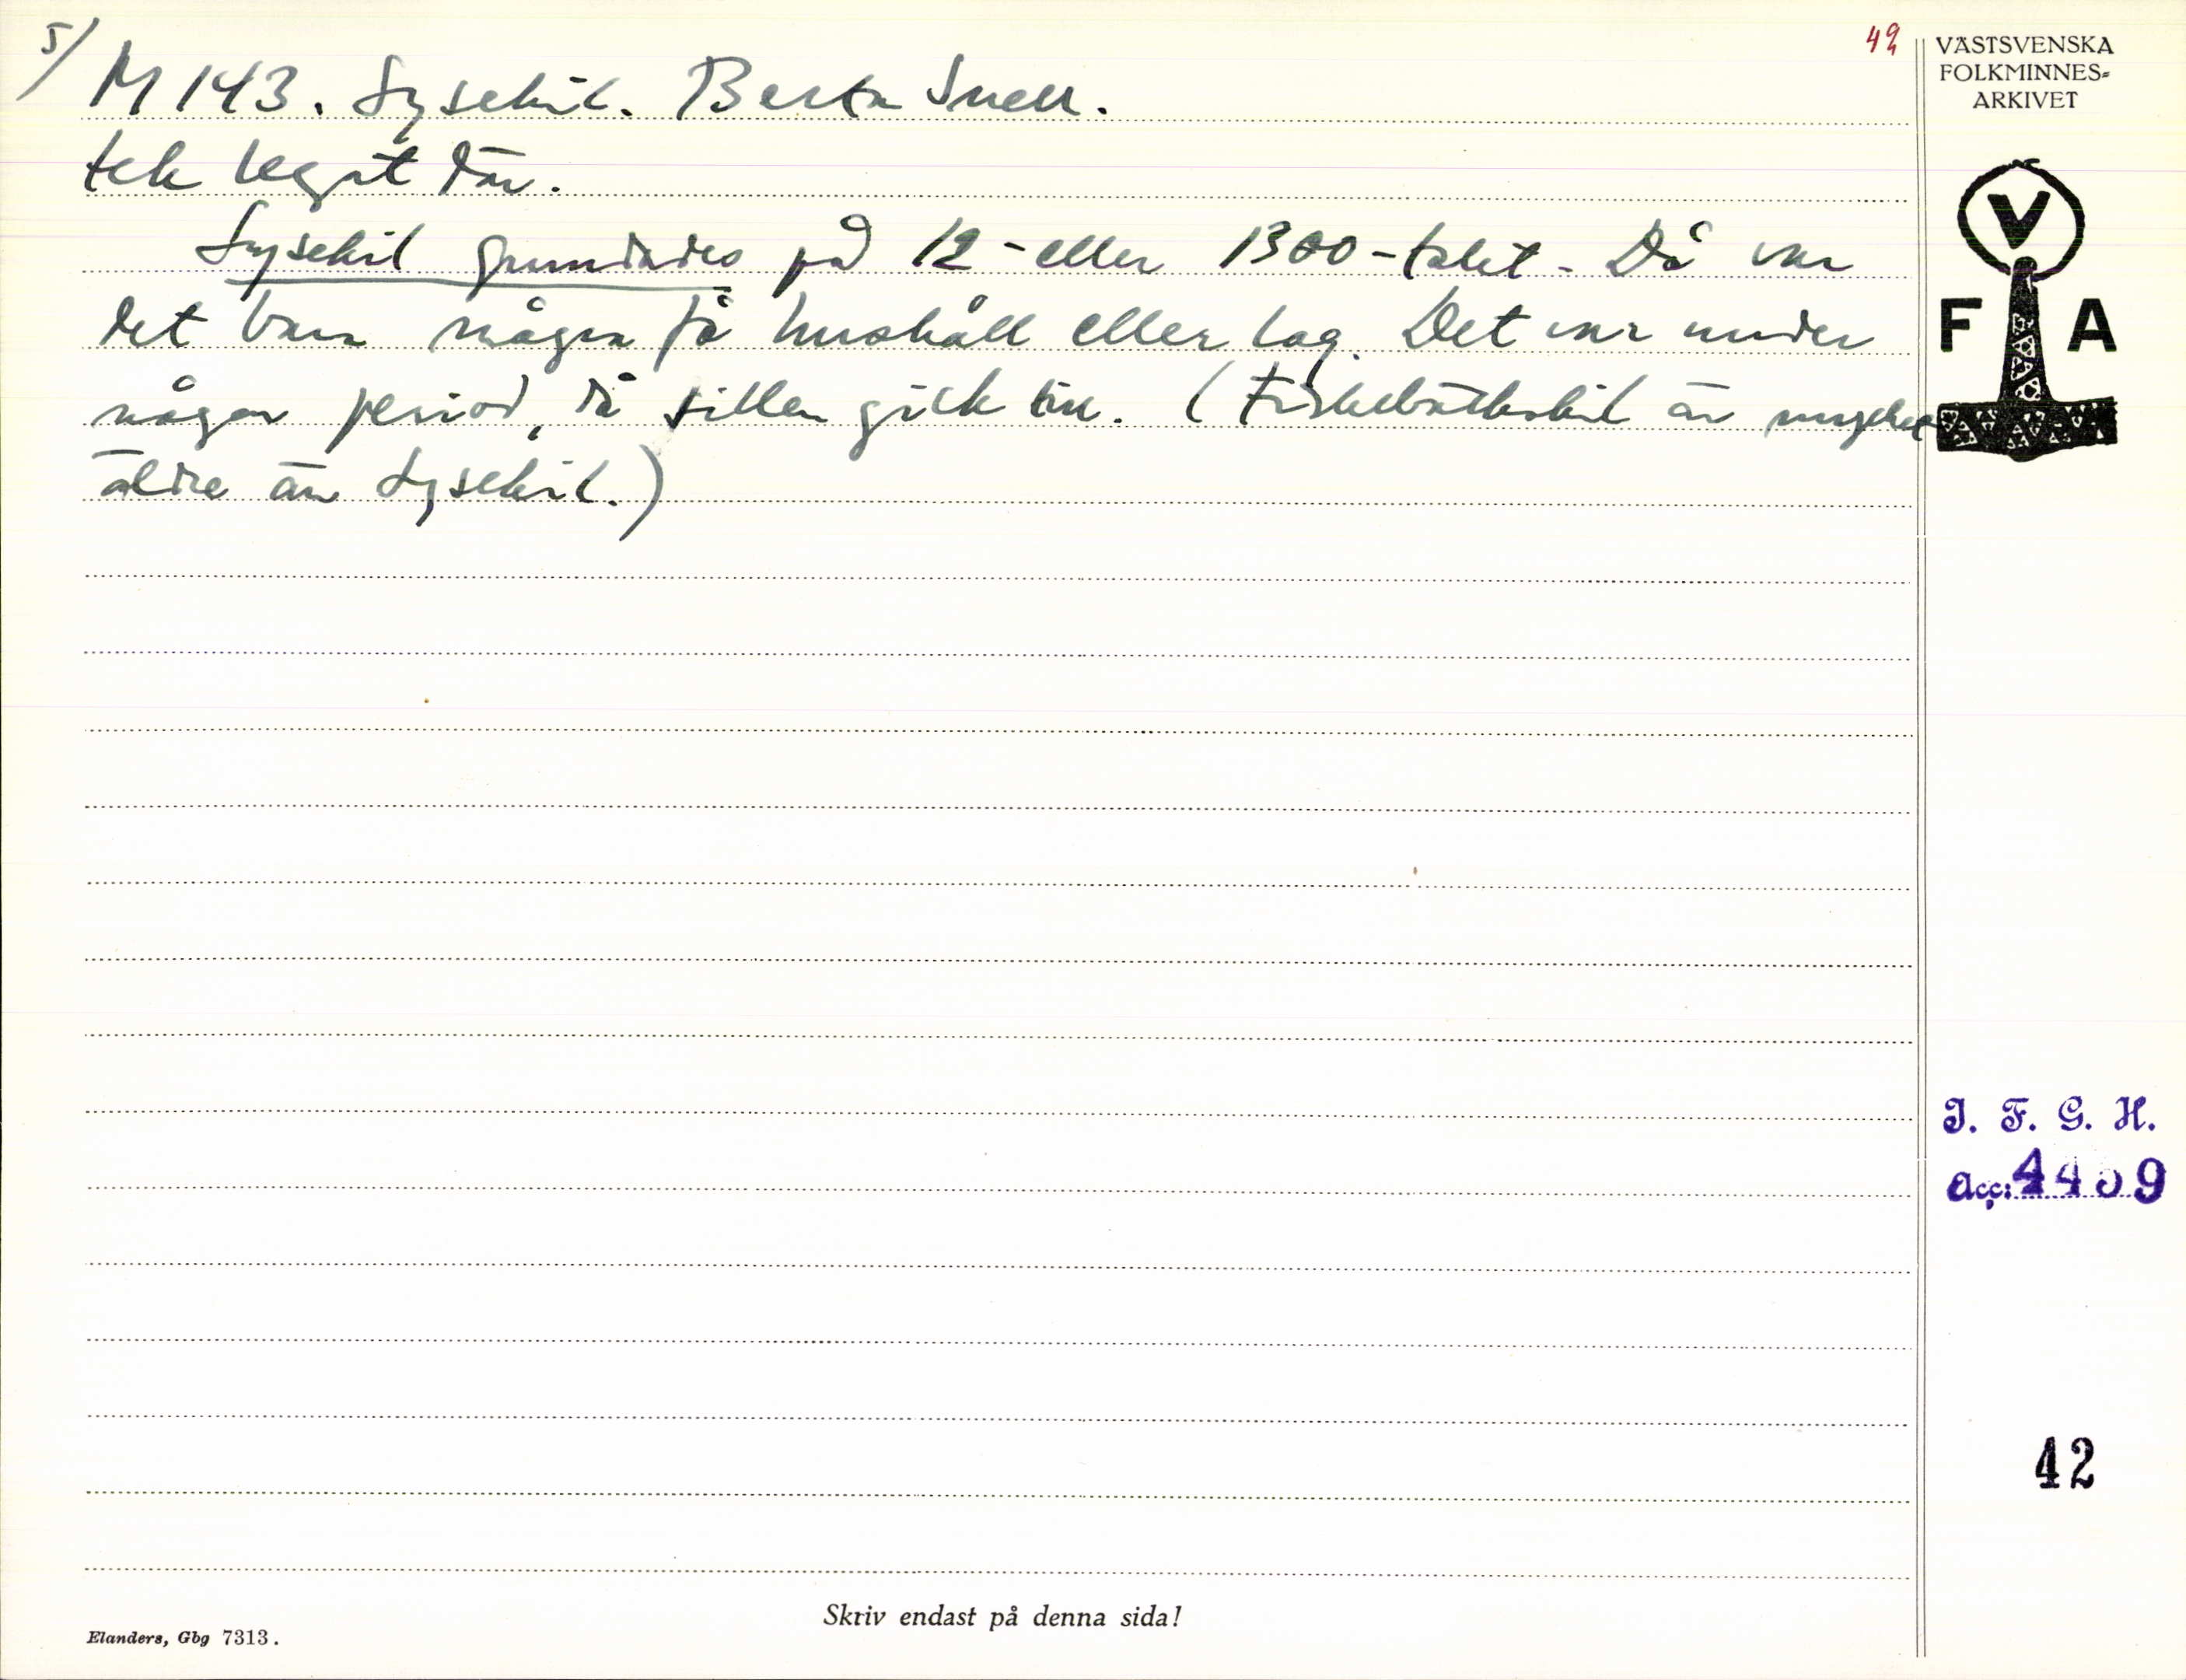 5/
M 143. Lysekil. Berta Snell.
42
tek legat där.
Lysekil grundades på 12- eller 1300-talet. Då var
det bara några få hushåll eller lag. Det var under
någon period, då sillen gick till. (Fiskebäckskil är mycket
äldre än Lysekil.)
VÄSTSVENSKA
FOLKMINNES-
ARKIVET
V
F A
I. F. G. H.
Acc: 4459
42
Skriv endast på denna sida!
Elanders, Gbg 7313.